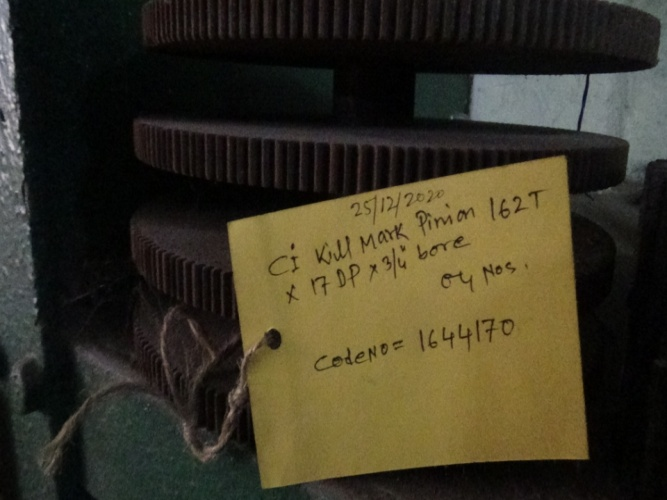 25/12/2020
Ci Kill Mark Pinion 162T
x 17 DP x 3/4" bore
04 Nos.
Code No = 1644170